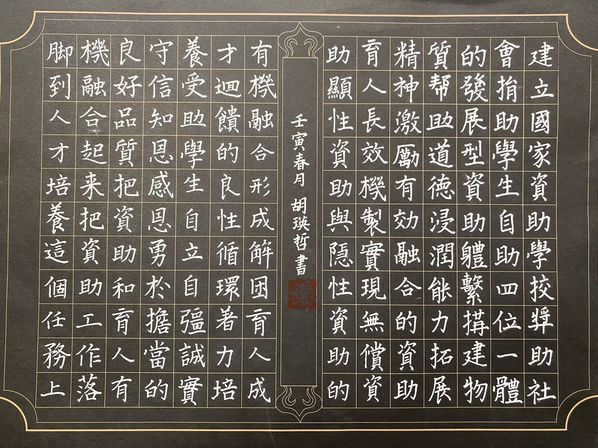 建立國家資助學校獎助社
會捐助學生自助四位一體
的發展型資助體繫搆建物
質帮助道德浸潤能力拓展
精神激勵有効融合的資助
育人長效機製實現無償資
助顯性資助與隱性資助的
有機融合形成解困育人成
才迴饋的良性循環着力培
養受助學生自立自彊誠實
守信知恩感恩勇於擔當的
良好品質把資助和育人有
機融合起来把資助工作落
脚到人才培養這個任務上
壬寅春月 胡瑛哲書